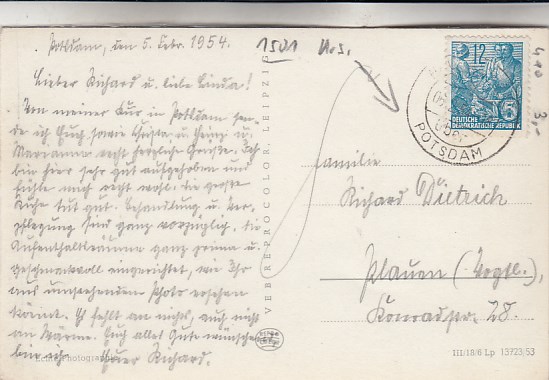 Potsdam, den 5. Febr. 1954.
Lieber Richard u. liebe Linda!
Von meiner Kur in Potsdam sen-
de ich Euch sowie Christa u. Heinz u.
Marianne recht herzliche Grüße. Ich
bin hier sehr gut aufgehoben und
fühle mich recht wohl. Die große
Ruhe tut gut. Behandlung u. Ver-
pflegung sind ganz vorzüglich, die
Aufenthaltsräume ganz prima u.
geschmackvoll eingerichtet, wie Ihr
aus umstehendem Photo ersehen
könnt. Es fehlt an nichts, auch nicht
an Wärme. Euch alles Gute wünschend
bin ich Euer Richard.
VEB REPROCOLOR, LEIPZIG
1501
12
5
DEUTSCHE
DEMOKRATISCHE REPUBLIK
POTSDAM
3.-
Familie
Richard Dietrich
Plauen (Vogtl.)
Konradstr. 28.
III/18/6 Lp 13723/53